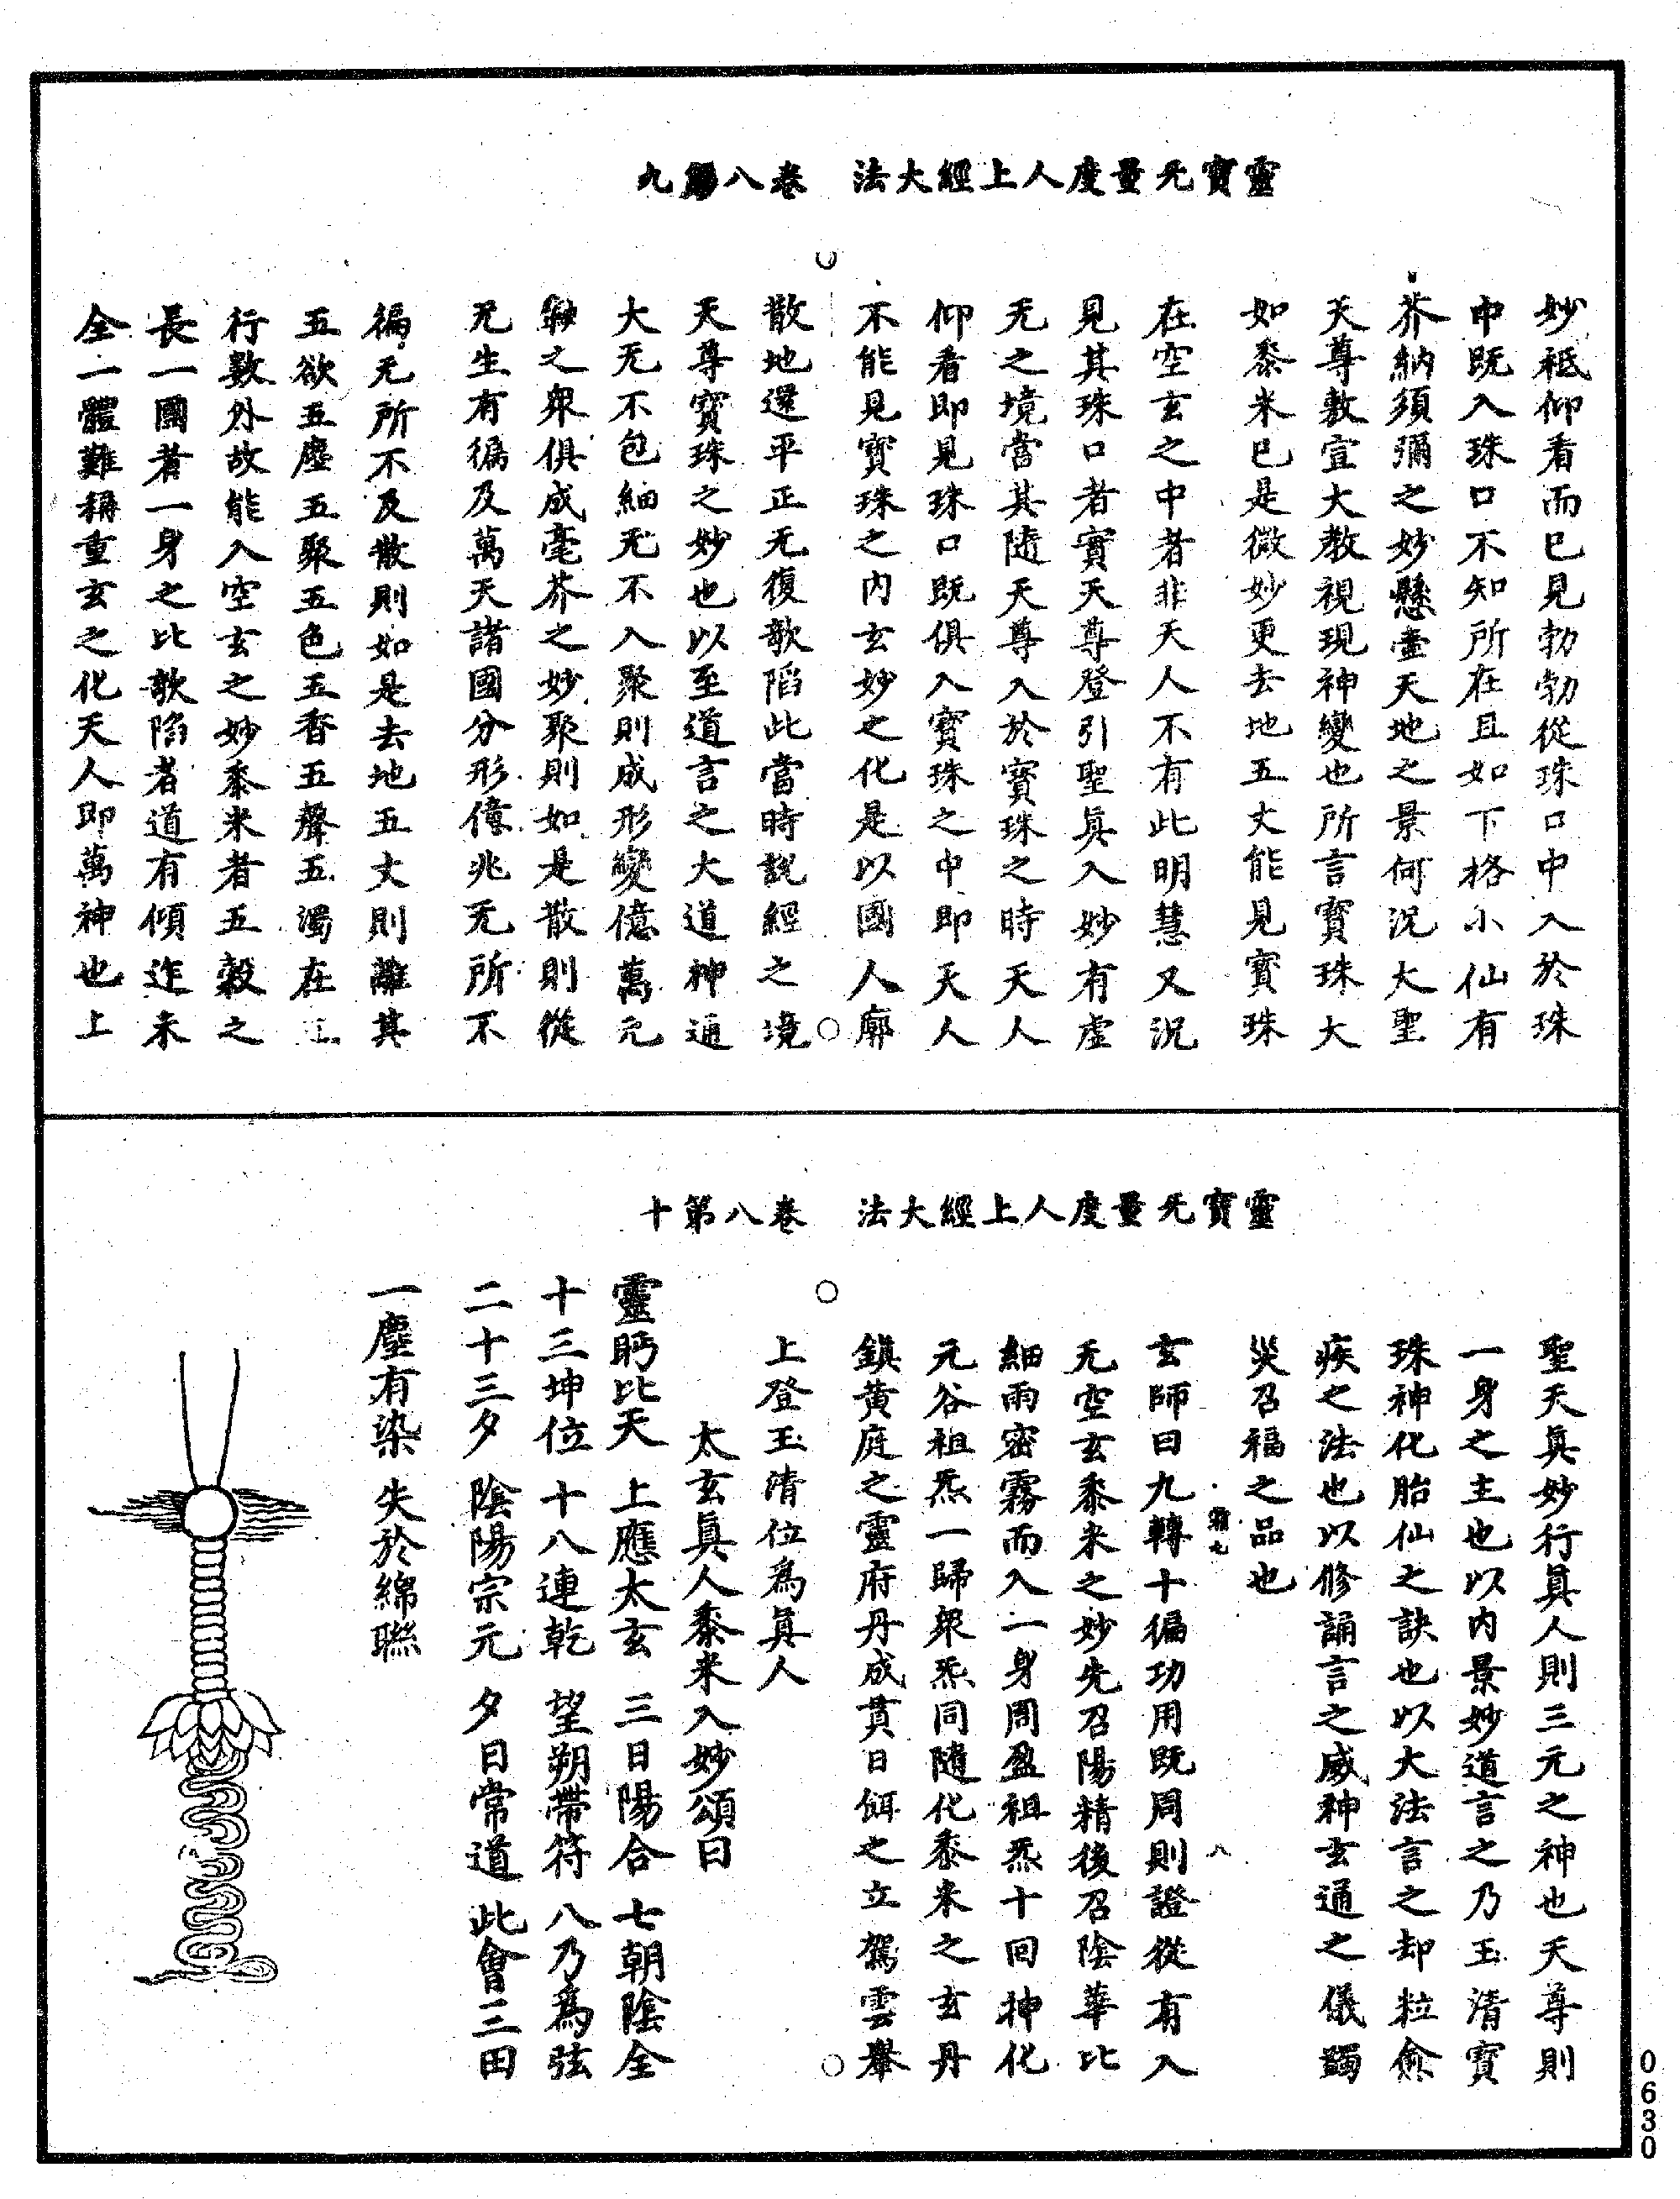 靈寶无量度人上經大法　卷八第九
妙祗仰看而巳見勃勃從珠口中入於珠
中既入珠口不知所在且如下格小仙有
芥納須彌之妙懸壺天地之景何况大聖
天尊敷宣大教視現神變也所言寶珠大
如黍米巳是微妙更去地五丈能見寶珠
在空玄之中者非天人不有此明慧又況
見其珠口者實天尊登引聖眞入妙有虛
无之境當其隨天尊入於寶珠之時天人
仰看即見珠口既俱入寶珠之中即天人
不能見寶珠之內玄妙之化是以國人廓
散地還平正无復欹陷此當時説經之境
天尊寶珠之妙也以至道言之大道神通
大无不包細无不入聚則成形變億萬元
之衆俱成毫芥之妙聚則如是散則從
无生有徧及萬天諸國分形億兆无所不
徧无所不及散則如是去地五丈則離其
五欲五塵五聚五色五香五聲五濁在
行數外故能入空玄之妙黍米者五穀之
長一國者一身之比欹陷者道有傾迮未
全一體難稱重玄之化天人即萬神也上
靈寶无量度人上經大法　卷八第十
聖天眞妙行眞人則三元之神也天尊則
一身之主也以內景妙道言之乃玉清寶
珠神化胎仙之訣也以大法言之却粒愈
疾之法也以修誦言之威神玄通之儀蠲
災召福之品也
八
玄師曰九轉十徧功用既周則證從有入
无空玄黍米之妙先召陽精後召陰華比
細雨密霧而入一身周盈祖炁十回神化
元谷祖炁一歸衆炁同隨化黍米之玄丹
鎮黃庭之靈府丹成貫日餌之立駕雲舉
上登玉清位爲眞人
太玄眞人黍米入妙頌曰
靈眄比天　上應太玄　三日陽合　七朝陰全
十三坤位　十八連乾　望朔帶符　八乃爲弦
二十三夕　陰陽宗元　夕日常道　此會三田
一塵有染　失於綿聯
0630